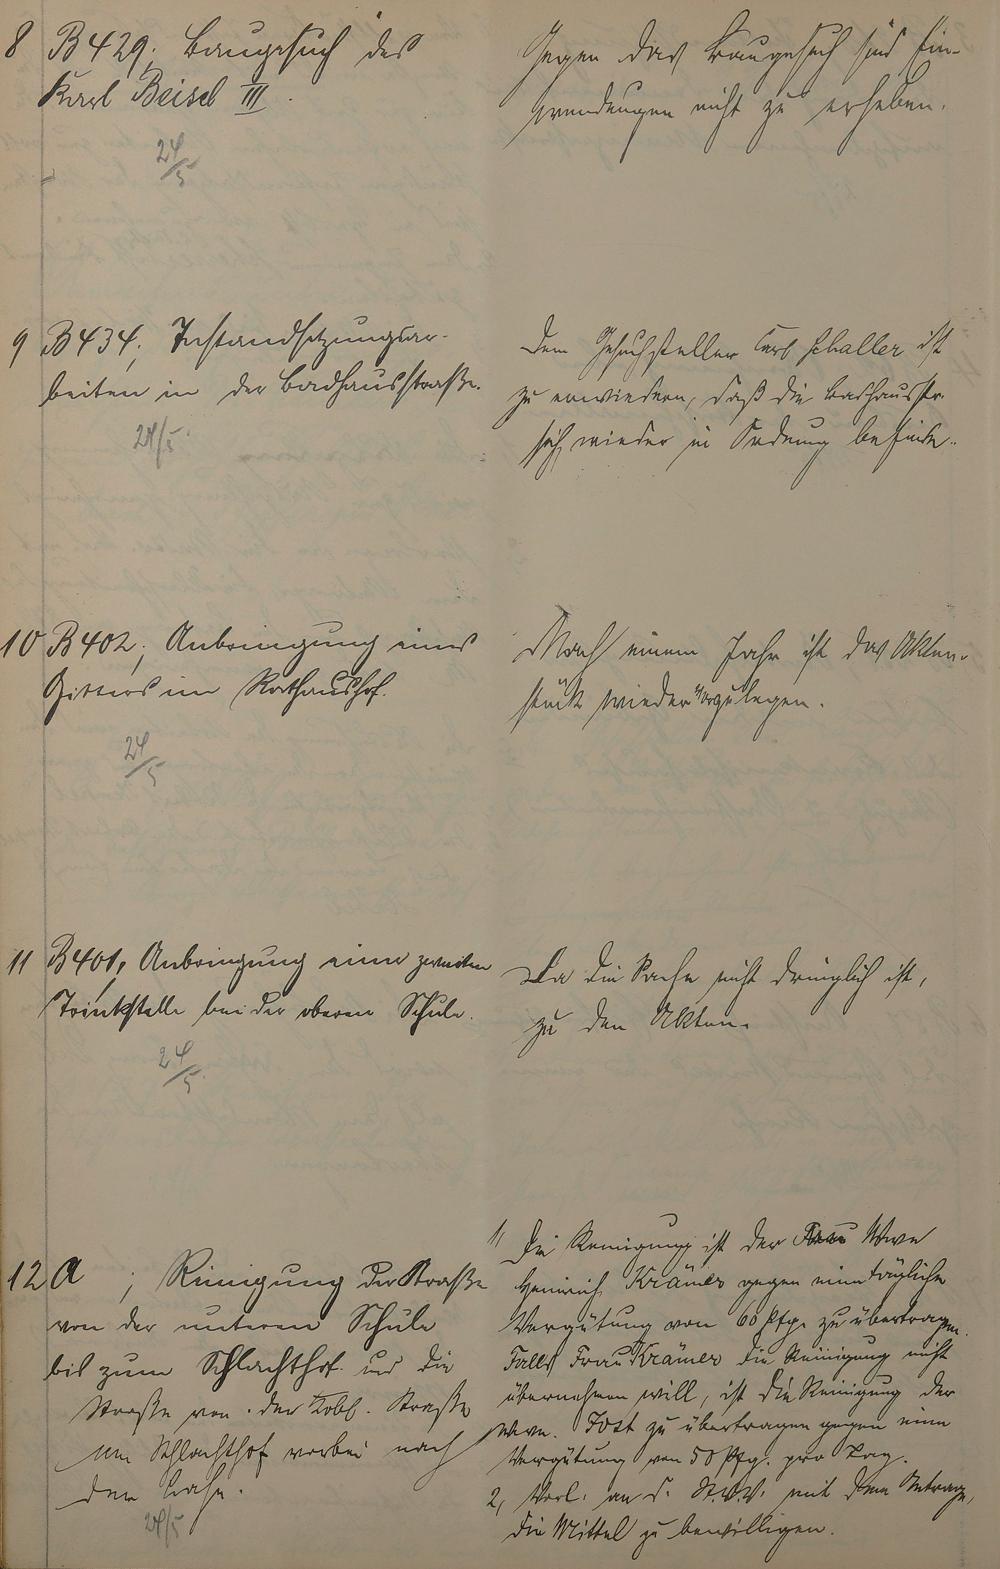 8 B 429; Baugesuch des
Karl Beisel III.
24/5
Gegen das Baugesuch sind Ein-
wendungen nicht zu erheben.
9 B 434; Instandsetzungsar-
beiten in der Badhausstraße.
24/5.
Dem Gesuchsteller Carl Schaller ist
zu erwiedern, daß die Badhausstr.
sich wieder in Ordnung befinde.
10 B 402; Anbringung eines
Gitters im Rathaushof.
24/5
Nach einem Jahr ist das Akten-
stück wieder vorzulegen.
11 B 401, Anbringung einer zweiten
Trinkstelle bei der oberen Schule.
24/5
Da die Sache nicht dringlich ist,
zu den Akten.
12 A ; Reinigung der Straße
von der unteren Schule
bis zum Schlachthof und die
Straße von der Kobl. Straße
am Schlachthof vorbei nach
der Lahn.
24/5
1) Die Reinigung ist der Frau Wwe
Heinrich Krämer gegen eine tägliche
Vergütung von 60 Pfg. zu übertragen.
Falls Frau Krämer die Reinigung nicht
übernehmen will, ist die Reinigung der
Wwe. Jost zu übertragen gegen eine
Vergütung von 50 Pfg. pro Tag.
2, Vorl. an d. St.V.V. mit dem Antrage,
die Mittel zu bewilligen.